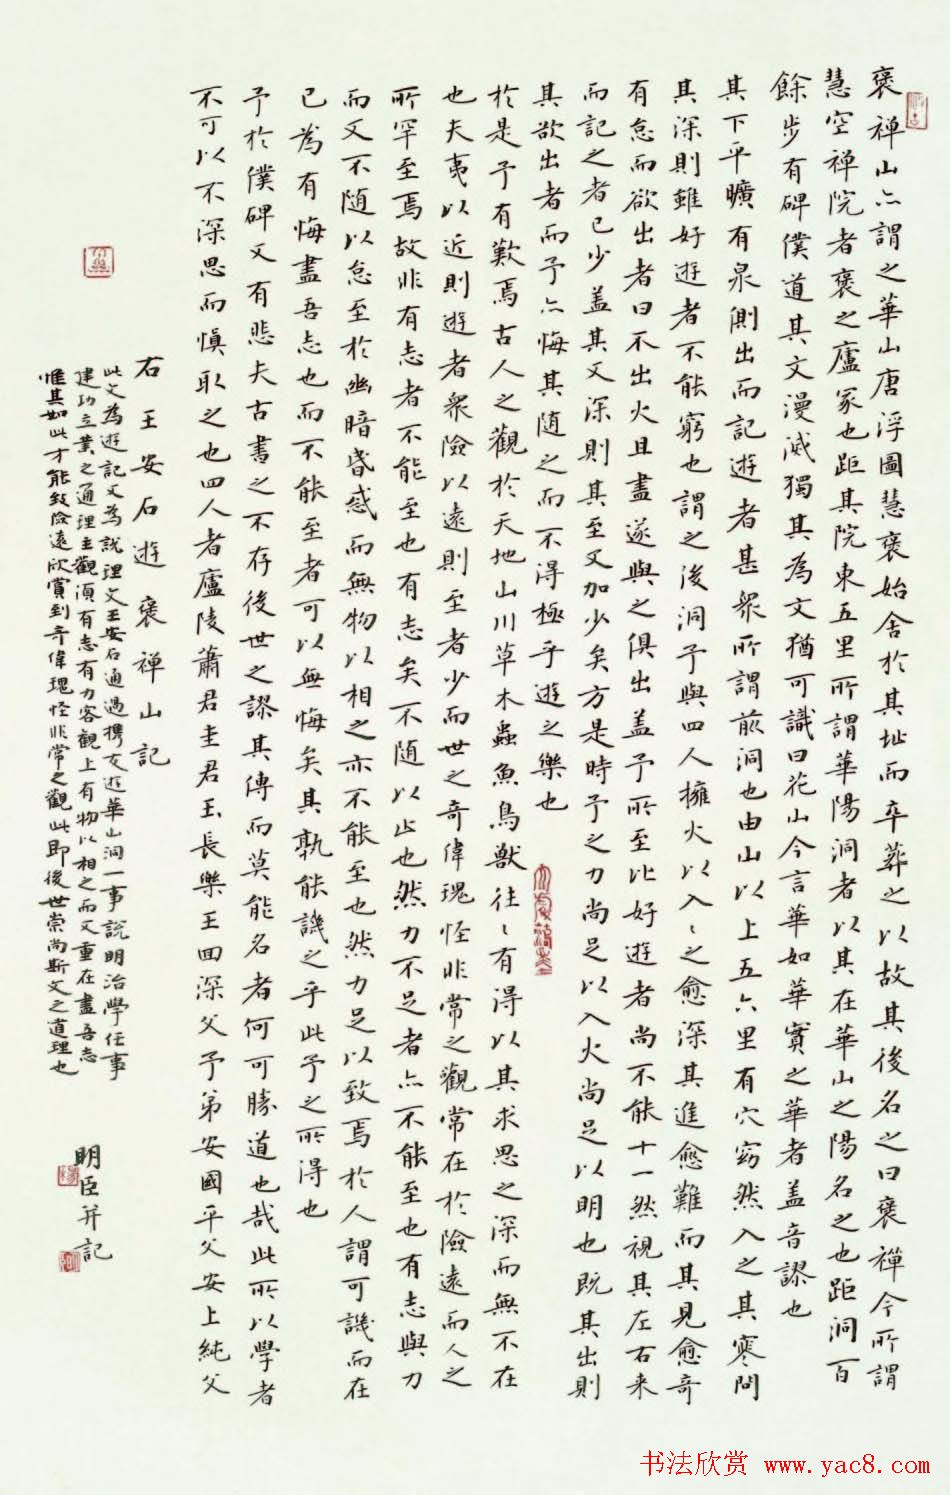 褒禅山亦謂之華山唐浮圖慧褒始舍於其址而卒葬之以故其後名之曰褒禅今所謂
慧空禅院者褒之廬冢也距其院東五里所謂華陽洞者以其在華山之陽名之也距洞百
餘步有碑僕道其文漫滅獨其為文猶可識曰花山今言華如華實之華者蓋音謬也
其下平曠有泉側出而記遊者甚衆所謂前洞也由山以上五六里有穴窈然入之其寒問
其深則雖好遊者不能窮也謂之後洞予與四人擁火以入〻之愈深其進愈難而其見愈奇
有怠而欲出者曰不出火且盡遂與之俱出蓋予所至比好遊者尚不能十一然視其左右来
而記之者已少蓋其又深則其至又加少矣方是時予之力尚足以入火尚足以明也既其出則
其欲出者而予亦悔其随之而不得極乎遊之樂也
於是予有歎焉古人之觀於天地山川草木蟲魚鳥獸往〻有得以其求思之深而無不在
也夫夷以近則遊者衆險以遠則至者少而世之奇偉瑰怪非常之觀常在於險遠而人之
所罕至焉故非有志者不能至也有志矣不随以止也然力不足者亦不能至也有志與力
而又不随以怠至於幽暗昏惑而無物以相之亦不能至也然力足以致焉於人謂可譏而在
已為有悔盡吾志也而不能至者可以無悔矣其孰能譏之乎此予之所得也
予於僕碑又有悲夫古書之不存後世之謬其傳而莫能名者何可勝道也哉此所以學者
不可以不深思而慎取之也四人者廬陵蕭君圭君玉長樂王回深父予弟安國平父安上純父
右王安石遊褒禅山記
此文為遊記又為說理文王安石通過攜友遊華山洞一事說明治學任事
建功立業之通理主觀須有志有力客觀上有物以相之而又重在盡吾志
惟其如此才能致險遠欣賞到奇偉瑰怪非常之觀此即後世崇尚斯文之道理也
明臣并記
书法欣赏 www.yac8.com